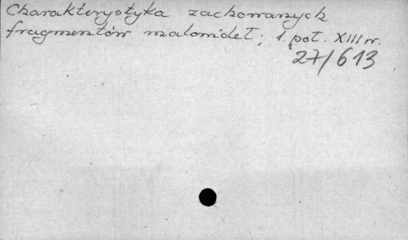 Charakterystyka zachowanych
fragmentów malowideł; 1. poł. XIII w.
27/613